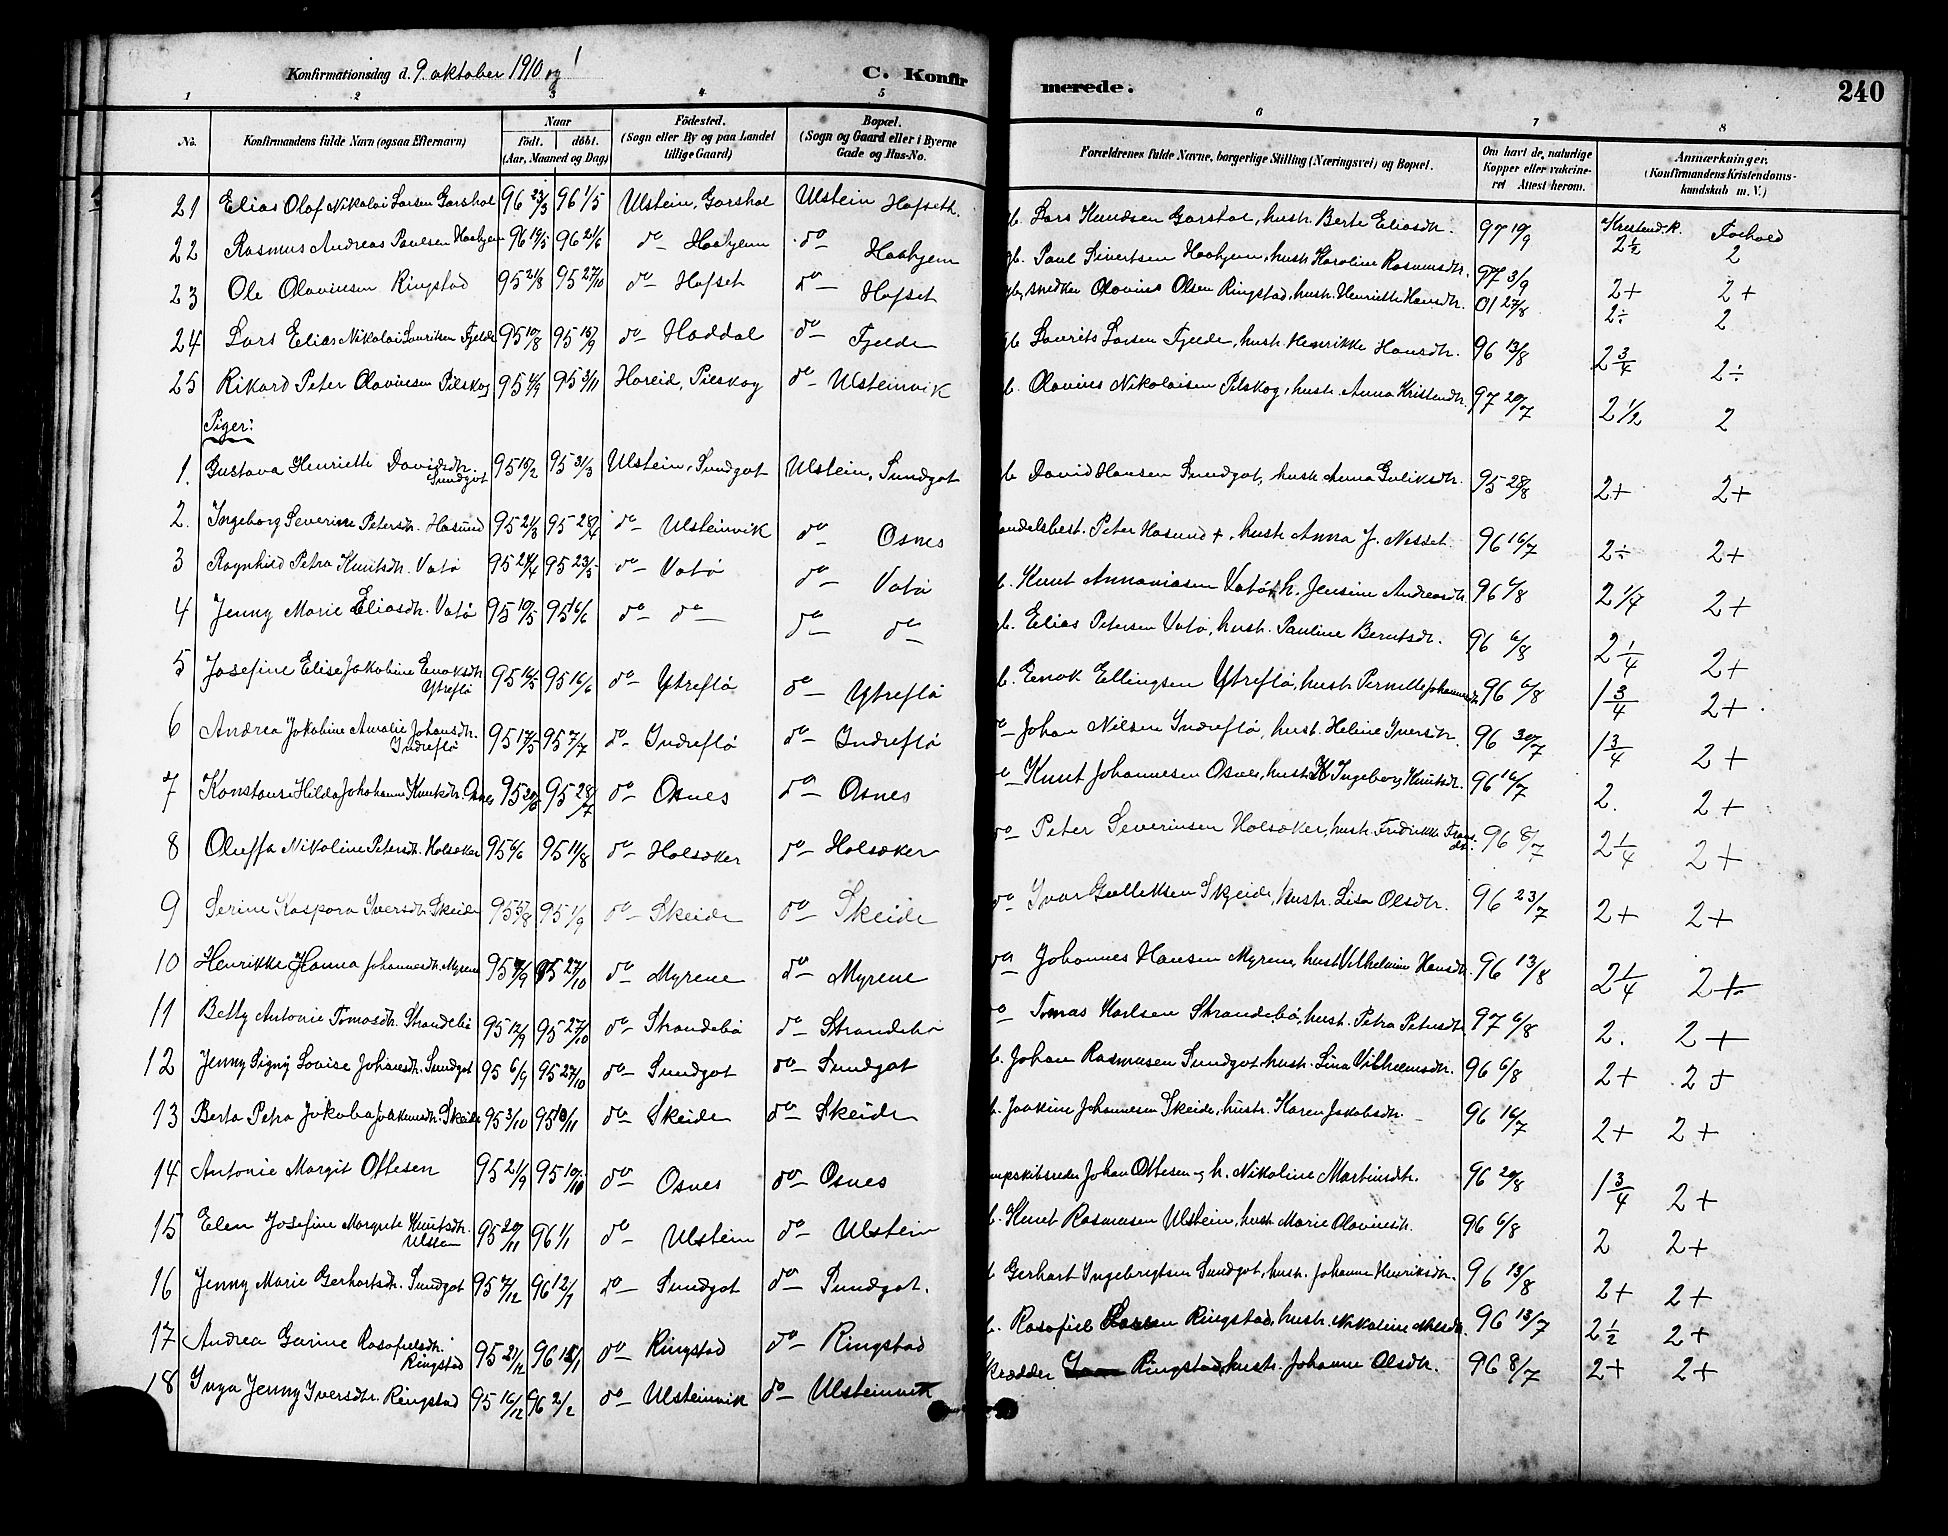 Konfirmationsdag d. 9. oktober 1910
C. Konfirmerede. 240
1 2 3 4 5 6 7 8
No. Konfirmandens fulde Navn (ogsaa Efternavn) Naar födt. döbt. (Aar, Maaned og Dag) Födested. (Sogn eller By og paa Landet tillige Gaard) Bopæl. (Sogn og Gaard eller i Byerne Gade og Hus-No. Forældrenes fulde Navne, borgerlige Stilling (Næringsvei) og Bopæl. Om havt de naturlige Kopper eller vakcineret Attest herom. Anmærkninger. (Konfirmandens Kristendomskundskab m. V.)
Kristend.k. Forhold
21 Elias Olaf Nikolai Larsen Garshol 96 96 1/5 Ulstein, Garshol Ulstein Hofseth. Lars Knudsen Garshol, hustr. Berte Eliasdtr. 97 19/9 2 1/2 2
22 Rasmus Andreas Paulsen Haahjem 96 19/5 96 21/6 do Haahjem do Haahjem Paul Sivertsen Haahjem, hustr. Karoline Rasmusdtr. 97 3/9 2+ 2+
23 Ole Olavinsen Ringstad 95 21/8 95 27/10 do Hofset do Hofset snedker Olavius Olsen Ringstad, hustr. Henriette Hansdtr. 01 27/8 2÷ 2
24 Lars Elias Nikolai Lauritsen Fjelde 95 10/8 95 15/9 do Haddal do Fjelde Laurits Larsen Fjelde, hustr. Henrikke Hansdtr. 96 13/8 2 3/4 2÷
25 Rikard Peter Olavinsen Pilskog 95 95 3/11 Hareid, Pilskog do Ulsteinvik Olavius Nikolaisen Pilskog, hustr. Anna Kristendtr. 97 20/7 2 1/2 2
Piger:
1. Gustava Henriette Davidsdtr. Sundgot 95 15/2 95 31/3 Ulstein, Sundgot Ulstein, Sundgot David Hansen Sundgot, hustr. Anna Guliksdtr. 95 28/8 2+ 2+
2. Ingeborg Severine Petersdtr. Hasund 95 21/3 95 28/4 do Ulsteinvik do Osnes Peter Hasund +, hustr. Anna J. Nesset 96 16/7 2÷ 2+
3 Ragnhild Petra Knutsdtr. Vatø 95 24/4 95 23/5 do Vatø do Vatø Knut Annaniasen Vatø, h. Jensine Andreasdtr. 96 6/8 2 1/4 2+
4 Jenny Marie Eliasdtr. Vatø 95 19/5 95 16/6 do do do do Elias Petersen Vatø, hustr. Pauline Berntsdtr. 96 6/8 2 1/4 2+
5 Josefine Elise Jakobine Enoksdtr. Ytreflø 95 16/5 95 16/6 do Ytreflø do Ytreflø Enok Ellingsen Ytreflø, hustr. Pernille 96 6/8 1 3/4 2+
6 Andrea Jakobine Amalie Johansdtr. Indreflø 95 17/5 95 7/7 do Indreflø do Indreflø Johan Nilsen Indreflø, hustr. Heline Iversdtr. 96 30/7 1 3/4 2+
7 Konstanse Hilda Johanne Knutsdtr. Osnes 95 95 28/7 do Osnes do Osnes Knut Johannesen Osnes, hustr. Ingeborg Knutsdtr. 96 16/7 2. 2+
8 Oluffa Nikoline Petersdtr. Holsæker 95 6/6 95 11/8 do Holsæker do Holsæker Peter Severinsen Holsæker, hustr. Fredrikke Fransdtr. 96 8/7 2 1/4 2+
9 Serine Kaspara Iversdtr. Skeide 95 95 1/9 do Skeide do Skeide Ivar Gulleksen Skeide, hustr. Lisa Olsdtr. 96 23/7 2+ 2+
10 Henrikke Hanna Johannesdtr. Myrene 95 95 27/10 do Myrene do Myrene Johannes Hansen Myrene, hustr. Vilhelmine Hansdtr. 96 13/8 2 1/4 2+
11 Betty Antonie Tomasdtr. Strandebø 95 12/9 95 27/10 do Strandebø do Strandebø Tomas Karlsen Strandebø, hustr. Petra Petersdtr. 97 6/8 2. 2+
12 Jenny Signy Lovise Johansdtr. Sundgot 95 6/9 95 27/10 do Sundgot do Sundgot Johan Rasmusen Sundgot, hustr. Lina Vilhelmsdtr. 96 6/8 2+ 2+
13 Berta Petra Jakoba Joakimsdtr. Skeide 95 3/10 95 10/11 do Skeide do Skeide Joakim Johannesen Skeide, hustr. Karen Jakobsdtr. 96 16/7 2+ 2+
14 Antonie Margit Ottesen 95 21/9 95 10/10 do Osnes do Osnes Johan Ottesen og h. Nikoline Martinsdtr. 96 20/8 1 3/4 2+
15 Elen Josefine Margrete Knutsdtr. Ulstein 95 20/11 96 1/1 do Ulstein do Ulstein Knut Rasmusen Ulstein, hustr. Marie Olavinsdtr. 96 6/8 2 2+
16 Jenny Marie Gerhartsdtr. Sundgot 95 7/12 96 12/1 do Sundgot do Sundgot. Gerhart Ingebrigtsen Sundgot, hustr. Johanne Henriksdtr. 96 13/8 2+ 2+
17 Andrea Gurine Rasofielsdtr. Ringstad 95 21/12 96 do Ringstad do Ringstad Rasofiel Larsen Ringstad, hustr. Nikoline Nilsdtr. 96 13/7 2 1/2 2+
18 Inga Jenny Iversdtr. Ringstad 95 16/12 96 2/2 do Ulsteinvik do Ulsteinvik Skrædder Ringstad, hustr. Johanne Olsdtr. 96 8/7 2+ 2+